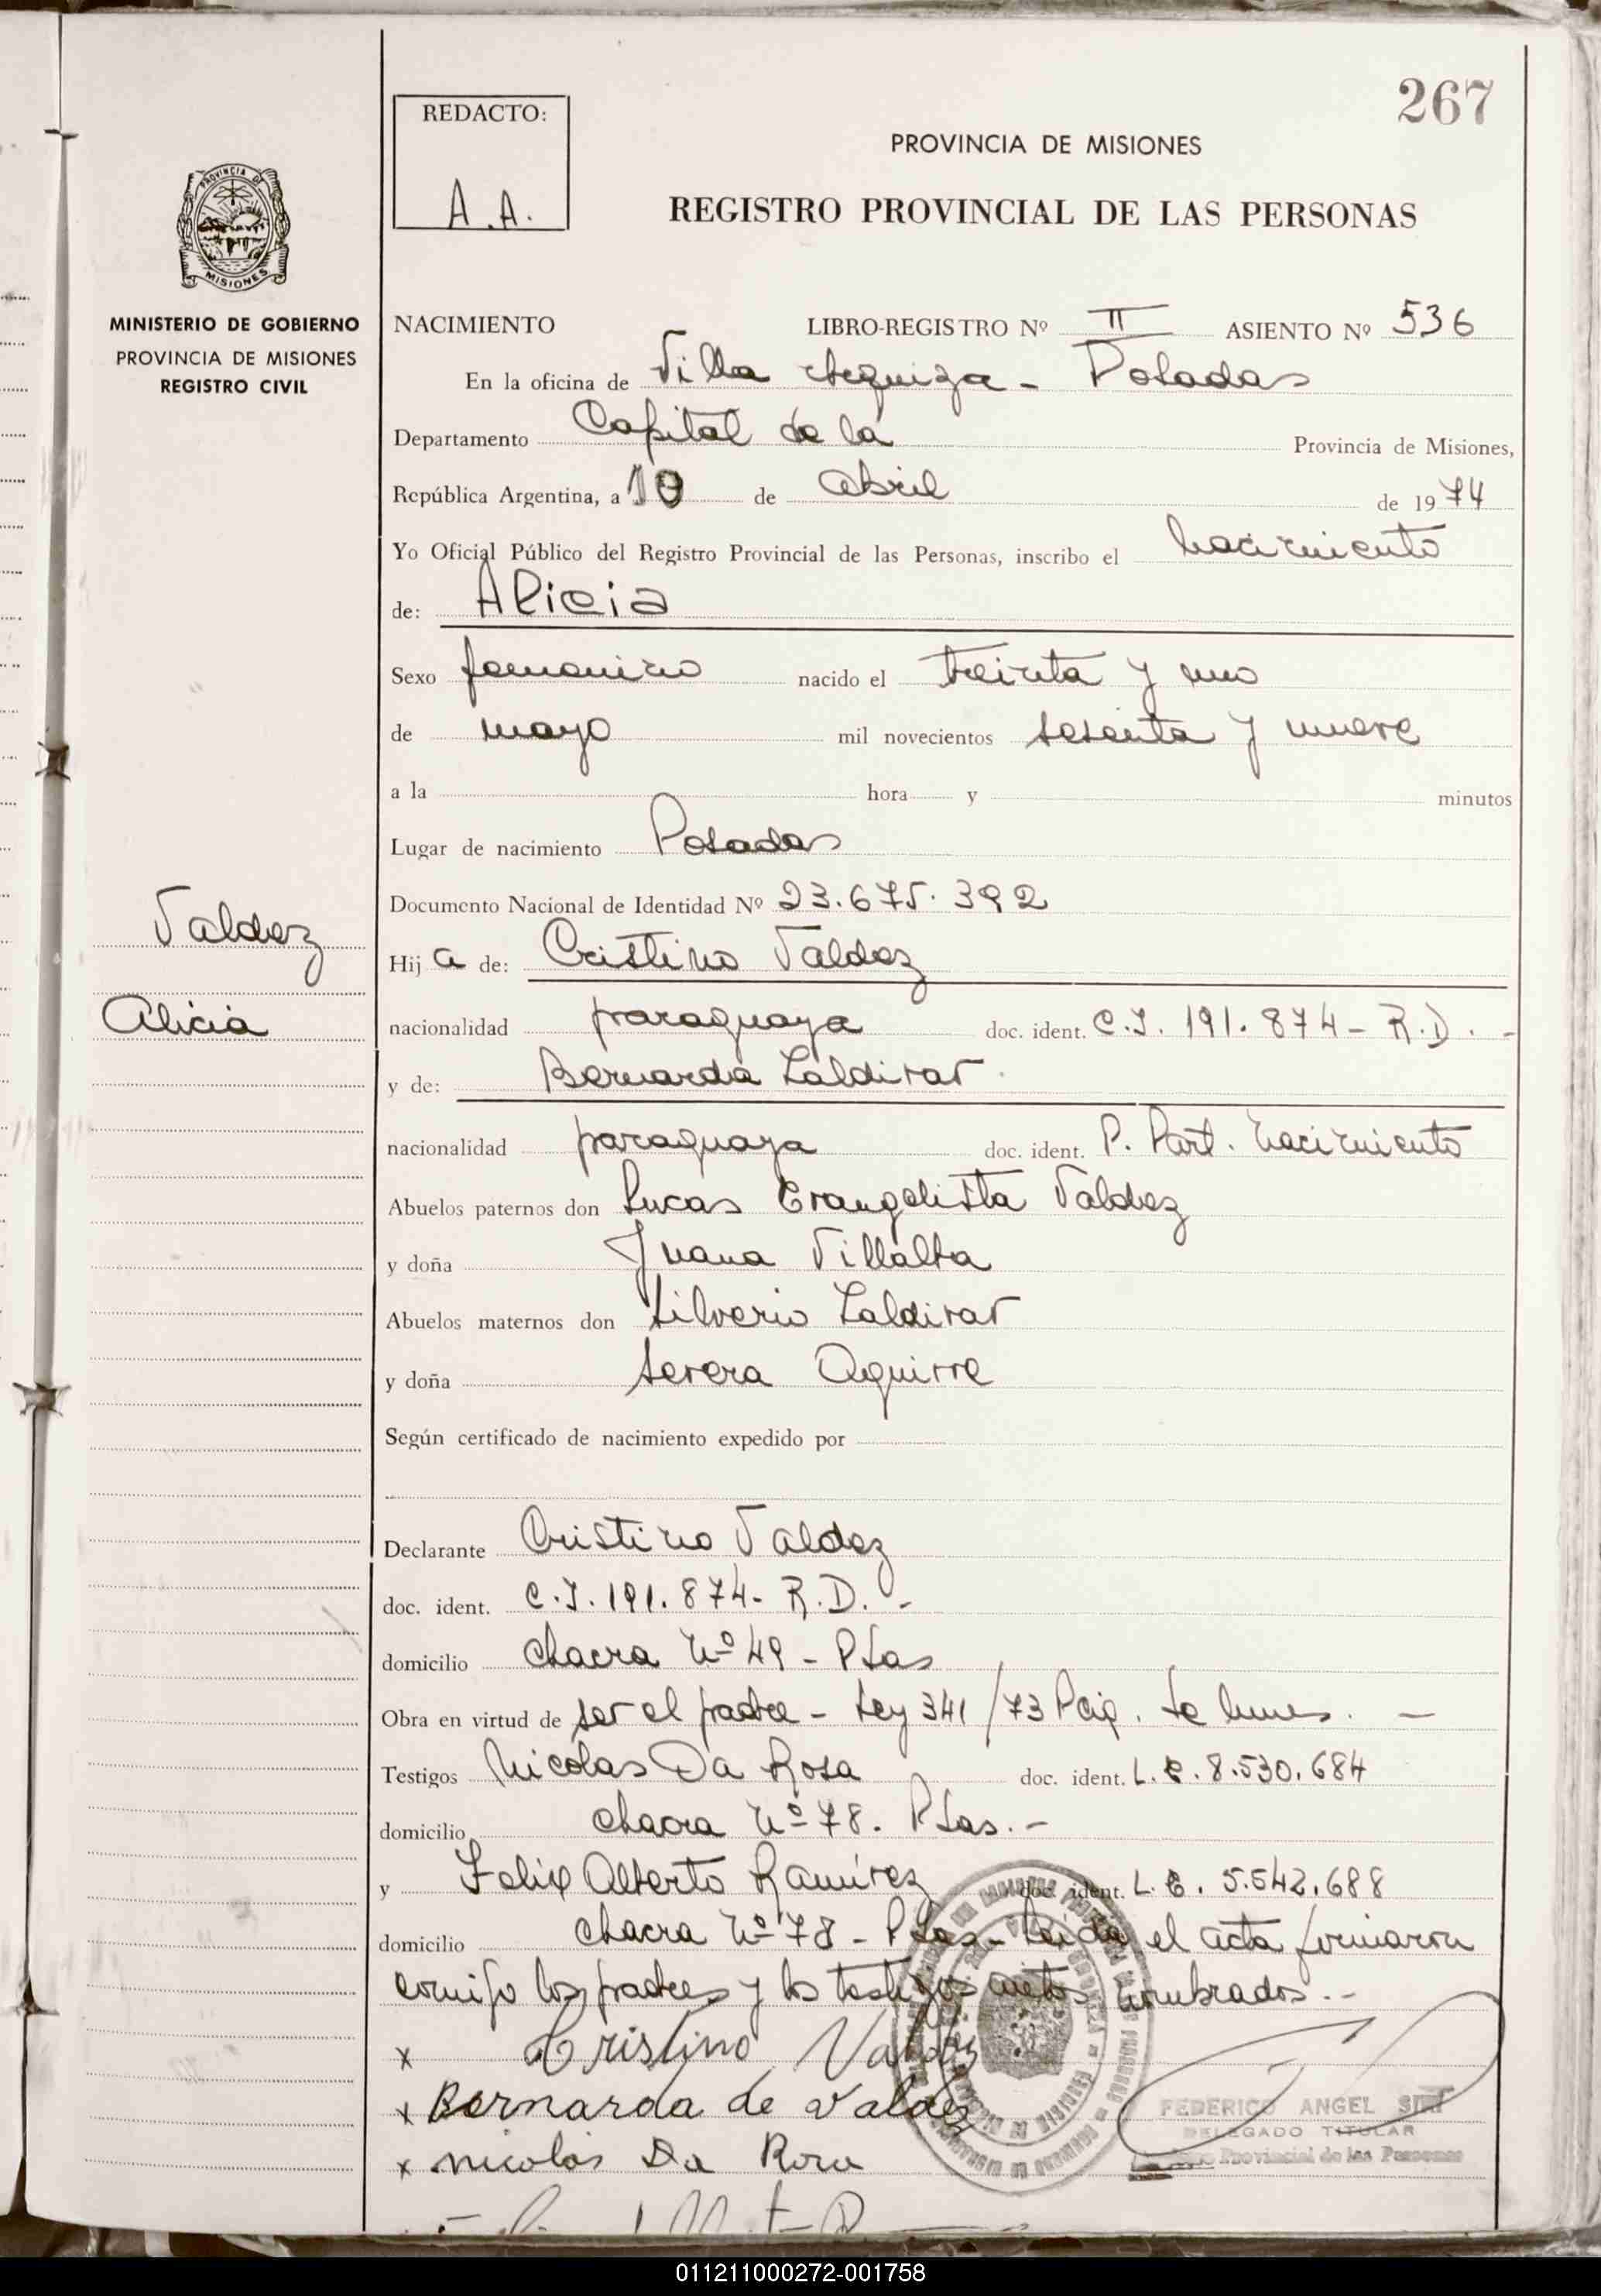 267
REDACTO:
A.A.
PROVINCIA DE MISIONES
REGISTRO PROVINCIAL DE LAS PERSONAS
PROVINCIA DE
MISIONES
MINISTERIO DE GOBIERNO
PROVINCIA DE MISIONES
REGISTRO CIVIL
NACIMIENTO LIBRO-REGISTRO Nº II ASIENTO Nº 536
En la oficina de Villa Urquiza - Posadas
Departamento Capital de la Provincia de Misiones,
República Argentina, a 10 de abril de 1974
Yo Oficial Público del Registro Provincial de las Personas, inscribo el nacimiento
de: Alicia
Sexo femenino nacido el treinta y uno
de mayo mil novecientos sesenta y nueve
a la hora y minutos
Lugar de nacimiento Posadas
Documento Nacional de Identidad Nº 23.675.392
Valdez
Hij a de: Cristino Valdez
Alicia
nacionalidad paraguaya doc. ident. C.I. 191.874 - R.D. -
y de: Bernarda Zaldivar
nacionalidad paraguaya doc. ident. P. Part. Nacimiento
Abuelos paternos don Lucas Evangelista Valdez
y doña Juana Villalba
Abuelos maternos don Silverio Zaldivar
y doña Severa Aguirre
Según certificado de nacimiento expedido por
Declarante Cristino Valdez
doc. ident. C.I. 191.874 - R.D. -
domicilio chacra Nº 49 - Psas
Obra en virtud de ser el padre - Ley 341/73
Testigos Nicolas Da Rosa doc. ident. L.E. 8.530.684
domicilio chacra Nº 78. Psas. -
y Felix Alberto Ramírez doc. ident. L.E. 5.542.688
domicilio chacra Nº 78 - Psas - Leída el acta firmaron
conmigo los padres y los testigos antes nombrados. -
x Cristino Valdez
x Bernarda de Valdez
x nicolas Da Rosa
FEDERICO ANGEL
DELEGADO TITULAR
Provincial de las Personas
011211000272-001758